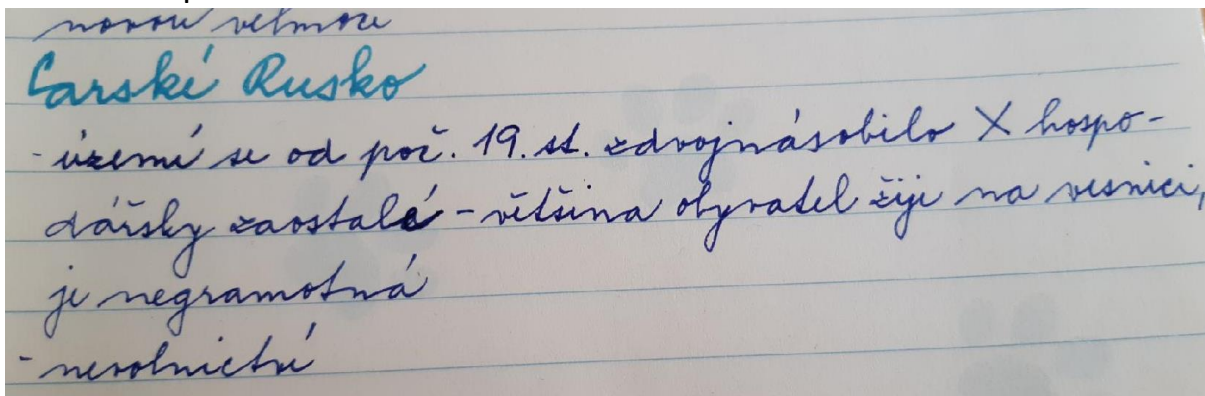 novou velmoc
Carské Rusko
- území se od poč. 19. st. zdvojnásobilo X hospo-
dářsky zaostalé - většina obyvatel žije na vesnici,
je negramotná
- nevolnictví